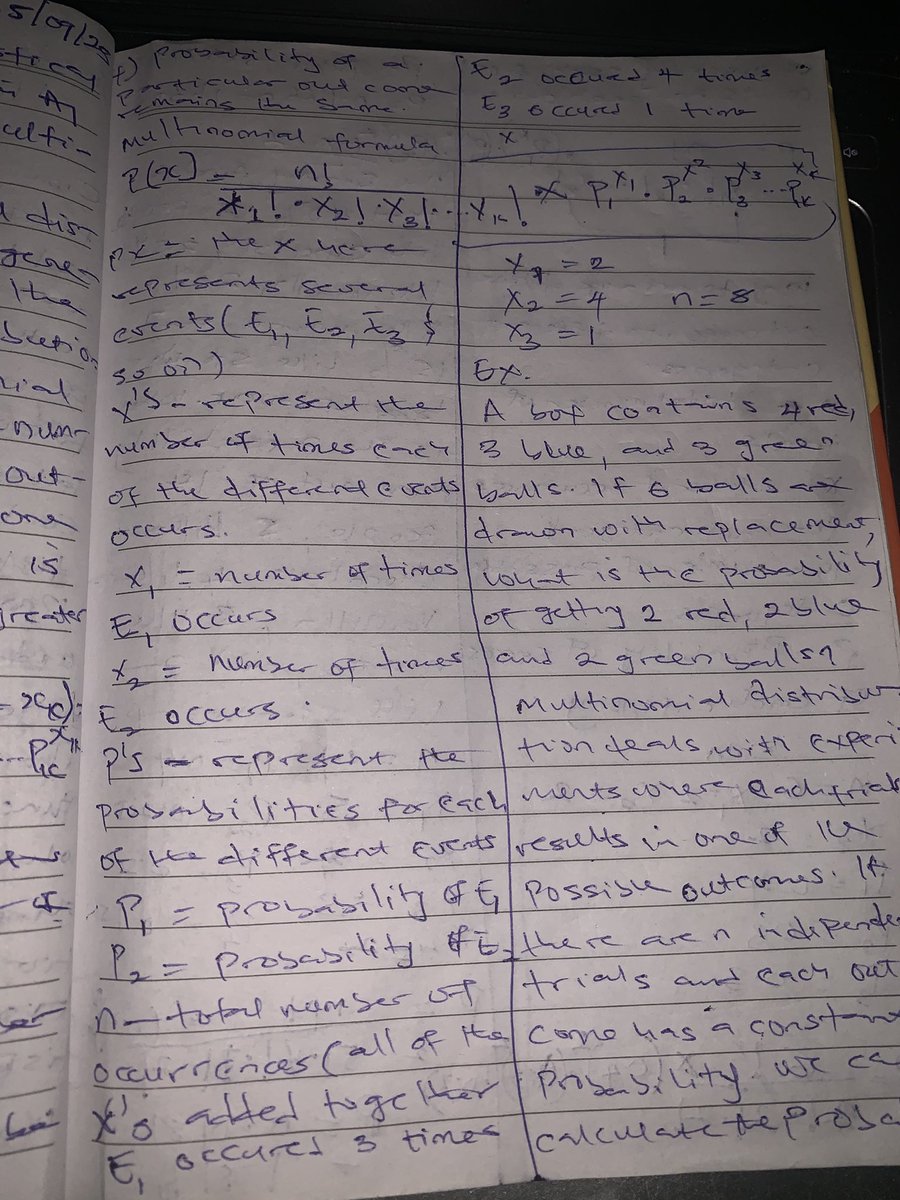 5/09/25
f) probability of a
particular out come
remains the same.
multinomial formula
P(x) = n!
x1! · x2! · x3! ... xk! × P1^x1 · P2^x2 · P3^x3 ... Pk^xk
px = the x here
represents several
events (E1, E2, E3 &
so on)
x's - represent the
number of times each
of the different events
occurs.
x1 = number of times
E1 occurs
x2 = number of times
E2 occurs.
p's - represent the
probabilities for each
of the different events
P1 = probability of E1
P2 = probability of E2
n - total number of
occurrences (all of the
x's added together
E1 occured 3 times
E2 occured 4 times
E3 occured 1 time
x
x1 = 2
x2 = 4 n = 8
x3 = 1
Ex.
A box contains 4 red,
3 blue, and 3 green
balls. If 6 balls are
drawn with replacement,
what is the probability
of getting 2 red, 2 blue
and 2 green balls?
Multinomial distribu-
tion deals with experi-
ments where each trial
results in one of k
possible outcomes. If
there are n independe
trials and each out
come has a constan
probability. We ca
calculate the proba